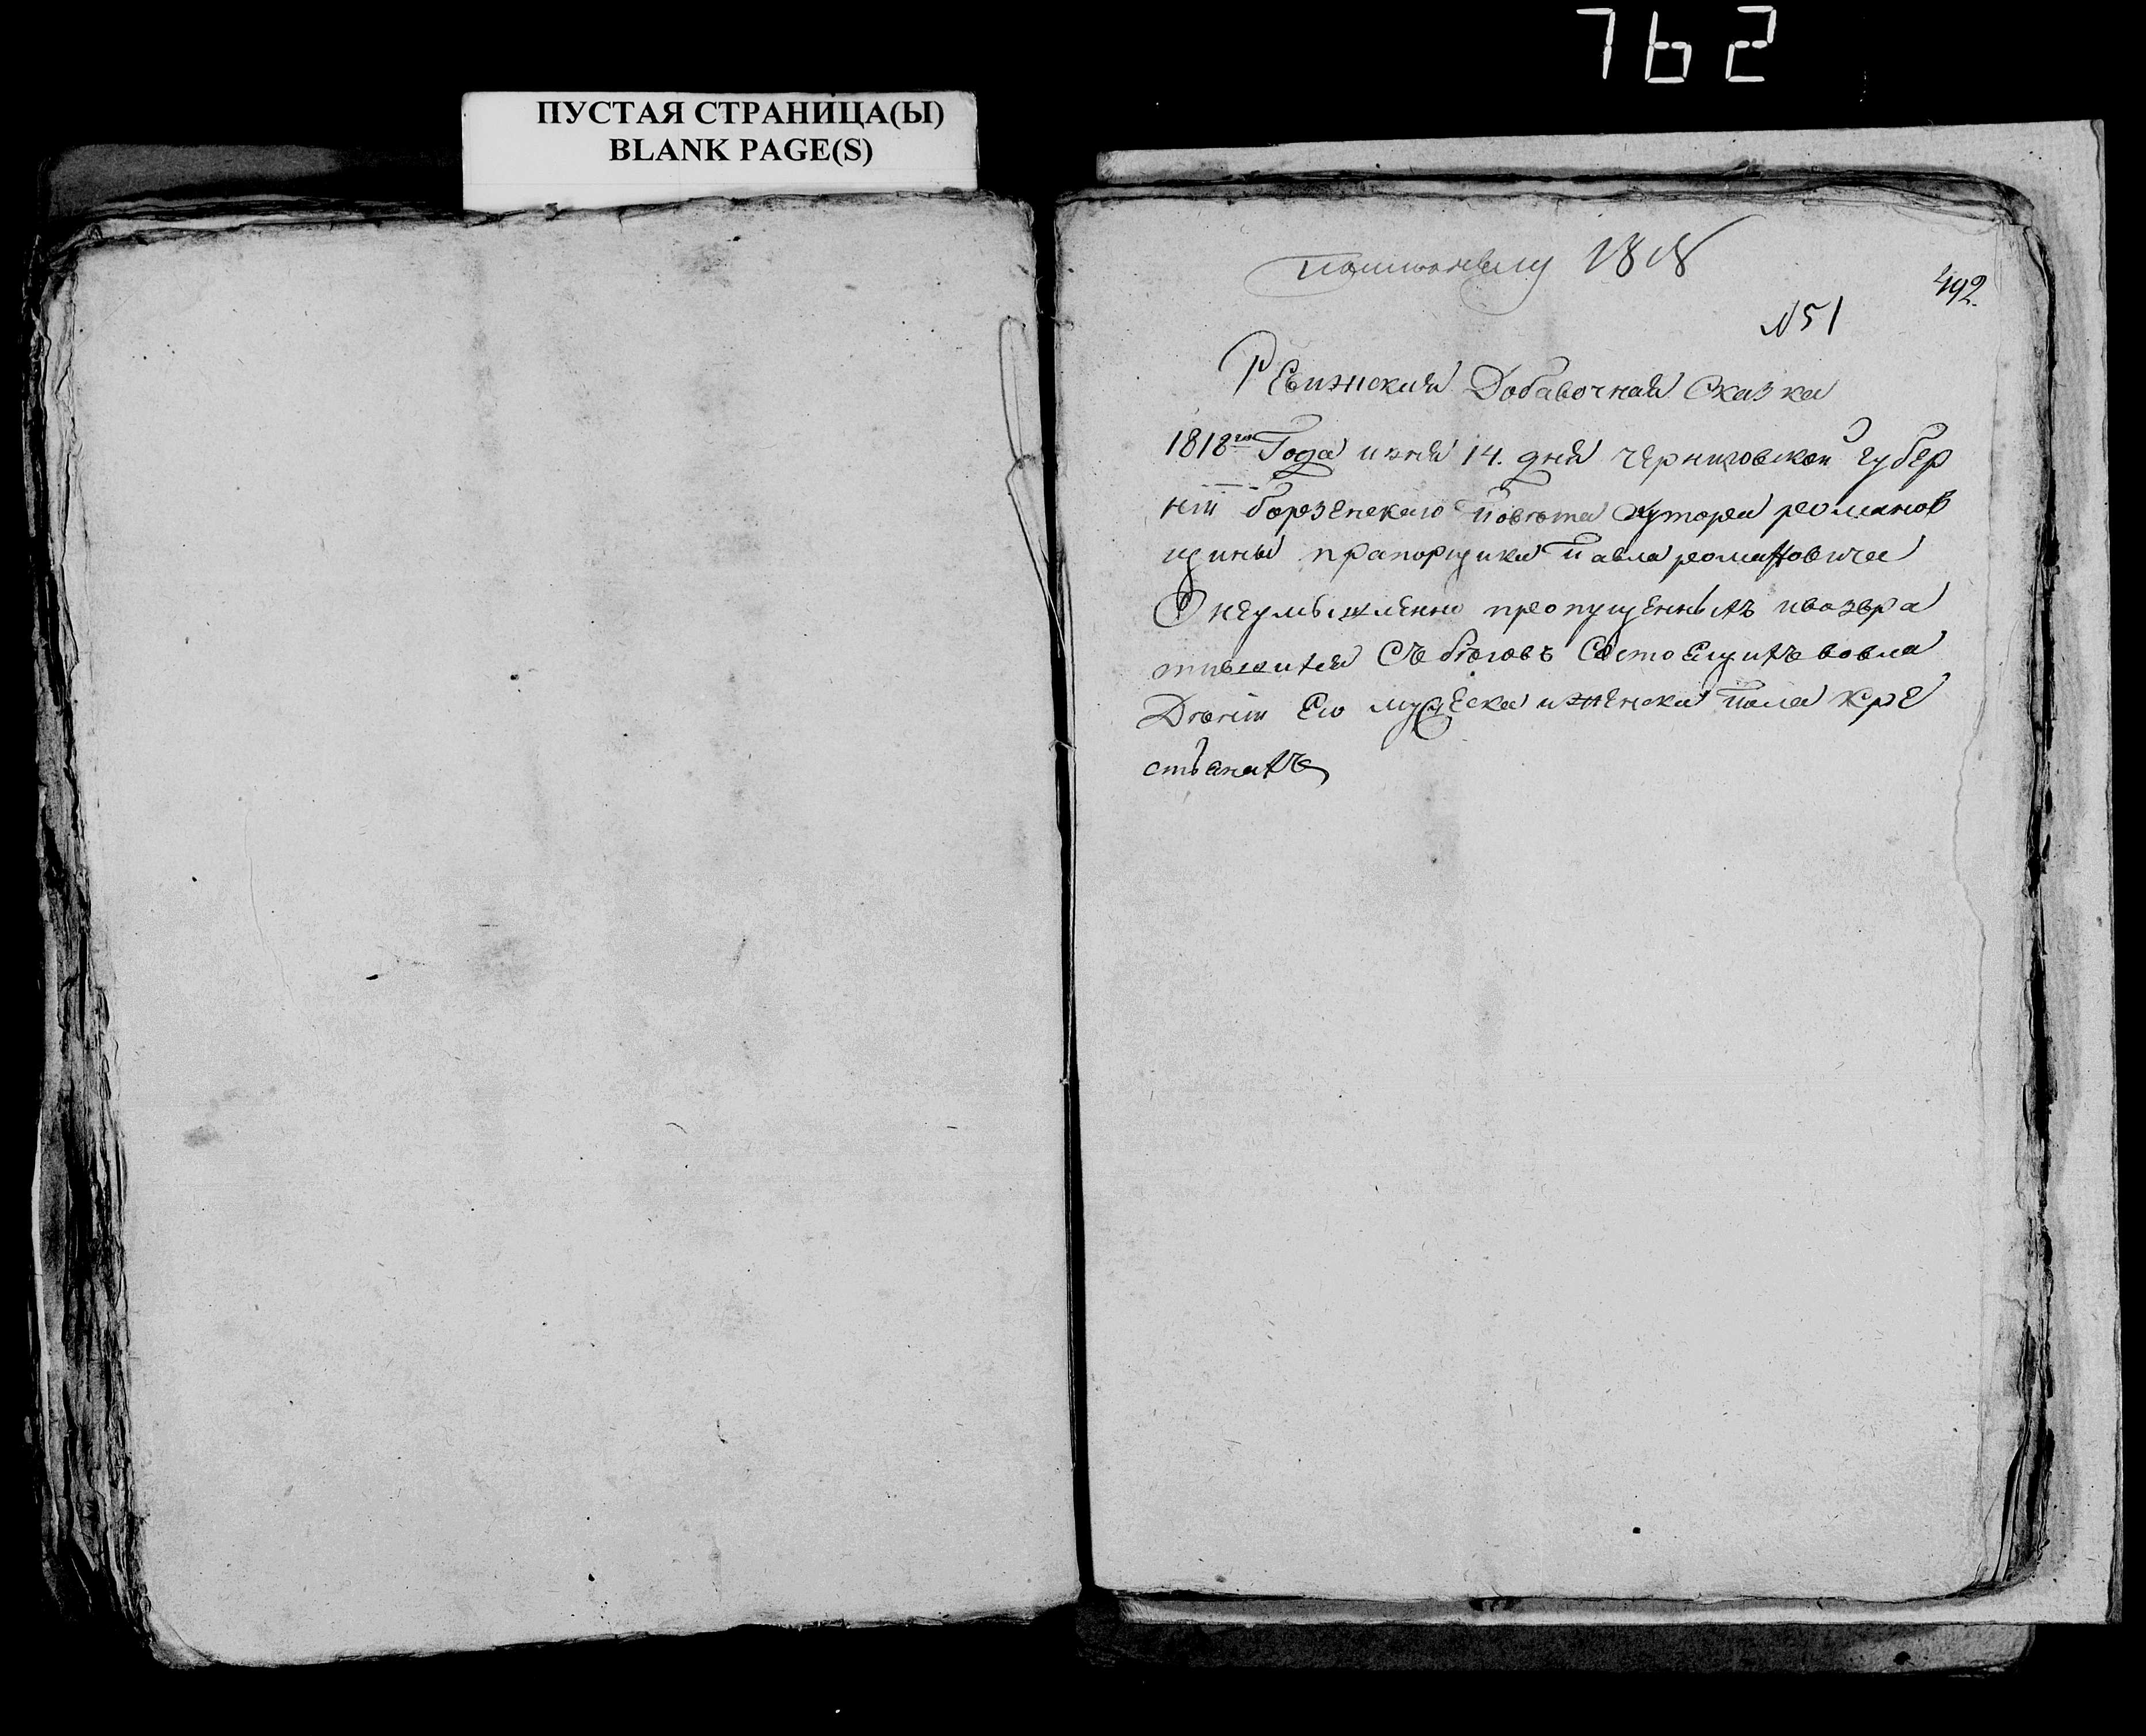 762
ПУСТАЯ СТРАНИЦА(Ы)
BLANK PAGE(S)
1818
492
N 51
Ревижская Добавочная Сказка
1818го Года июня 14. дня черниговской губер
нїи борзенского повета хутора романов
щины прапорщика Павла романовича
О неумышленно пропущенныхъ ивозвра
тившихся Съ беговъ Состоящихъ вовла
Денїи Его мужеска иженска пола кре
стьянахъ